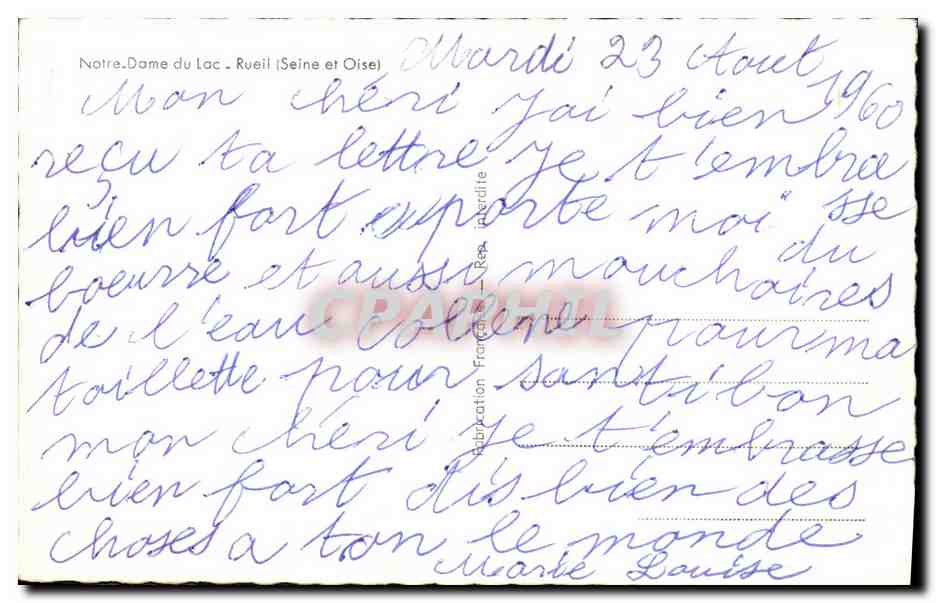 Notre-Dame du Lac - Rueil (Seine et Oise)
Mardi 23 Aout
1960
Mon chéri j'ai bien
reçu ta lettre je t'embra
sse
bien fort apporte moi du
boeurre et aussi mouchoires
de l'eau collene pour ma
toillette pour santi bon
mon chéri je t'embrasse
bien fort dis bien des
choses a ton le monde
Marie Louise
Fabrication Française - Rep. interdite
CPARPHIL